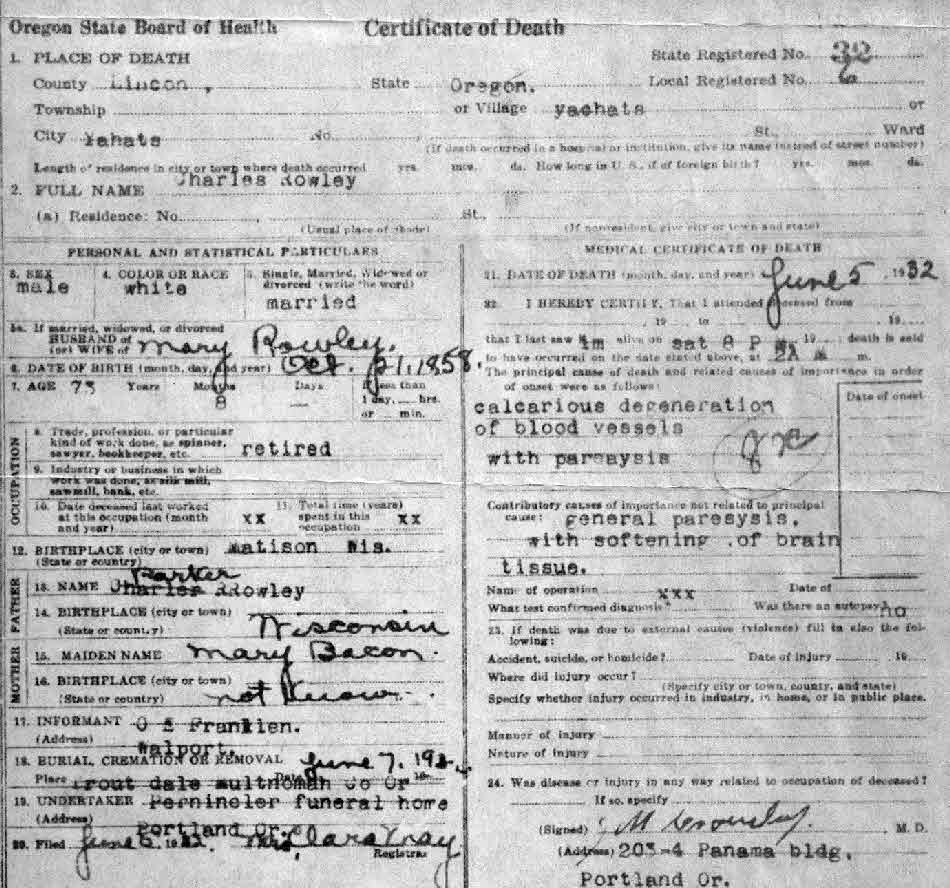 Oregon State Board of Health Certificate of Death
1. PLACE OF DEATH State Registered No. 32
County Lincon, State Oregon. Local Registered No. 6
Township or Village yachats or
City Yahats No. St., Ward
(If death occurred in a hospital or institution, give its name instead of street number)
Length of residence in city or town where death occurred yrs. mos. ds. How long in U. S., if of foreign birth? yrs. mos. ds.
2. FULL NAME Charles Rowley
(a) Residence: No. , St.,
(Usual place of abode) (If nonresident, give city or town and state)
PERSONAL AND STATISTICAL PARTICULARS
3. SEX 4. COLOR OR RACE 5. Single, Married, Widowed or
divorced (write the word)
male white married
5a. If married, widowed, or divorced
HUSBAND of
(or) WIFE of Mary Rowley.
6. DATE OF BIRTH (month, day, and year) Oct. 21, 1858.
7. AGE 73 Years Months 8 Days — If less than
1 day, hrs.
or min.
OCCUPATION
8. Trade, profession, or particular
kind of work done, as spinner,
sawyer, bookkeeper, etc. retired
9. Industry or business in which
work was done, as silk mill,
sawmill, bank, etc.
10. Date deceased last worked
at this occupation (month
and year) xx
11. Total time (years)
spent in this
occupation xx
12. BIRTHPLACE (city or town) Matison Wis.
(State or country)
FATHER
Parker
13. NAME Charles Rowley
14. BIRTHPLACE (city or town)
(State or country) Wisconsin
MOTHER
15. MAIDEN NAME Mary Bacon.
16. BIRTHPLACE (city or town)
(State or country) not Know.
17. INFORMANT O E Franklen.
(Address) Walport.
18. BURIAL, CREMATION OR REMOVAL June 7. 193
Place Trout dale multnomah Co Or Date 19
19. UNDERTAKER funeral home
(Address) Portland Or.
20. Filed June 6 1932. Mrs Clara
Registrar
MEDICAL CERTIFICATE OF DEATH
21. DATE OF DEATH (month, day, and year) June 5, 1932
22. I HEREBY CERTIFY, That I attended deceased from
19 to 19
that I last saw im alive on sat 8 P M 19 death is said
to have occurred on the date stated above, at 2A m m.
The principal cause of death and related causes of importance in order
of onset were as follows:
Date of onset
calcarious degeneration
of blood vessels
with paraaysis
Contributory causes of importance not related to principal
cause: general pareaysis,
with softening .of brain
tissue.
Name of operation xxx Date of
What test confirmed diagnosis? Was there an autopsy? no
23. If death was due to external causes (violence) fill in also the fol-
lowing:
Accident, suicide, or homicide? Date of injury 19
Where did injury occur?
(Specify city or town, county, and state)
Specify whether injury occurred in industry, in home, or in public place.
Manner of injury
Nature of injury
24. Was disease or injury in any way related to occupation of deceased?
If so, specify
(Signed) M. D.
(Address) 203-4 Panama bldg,
Portland Or.